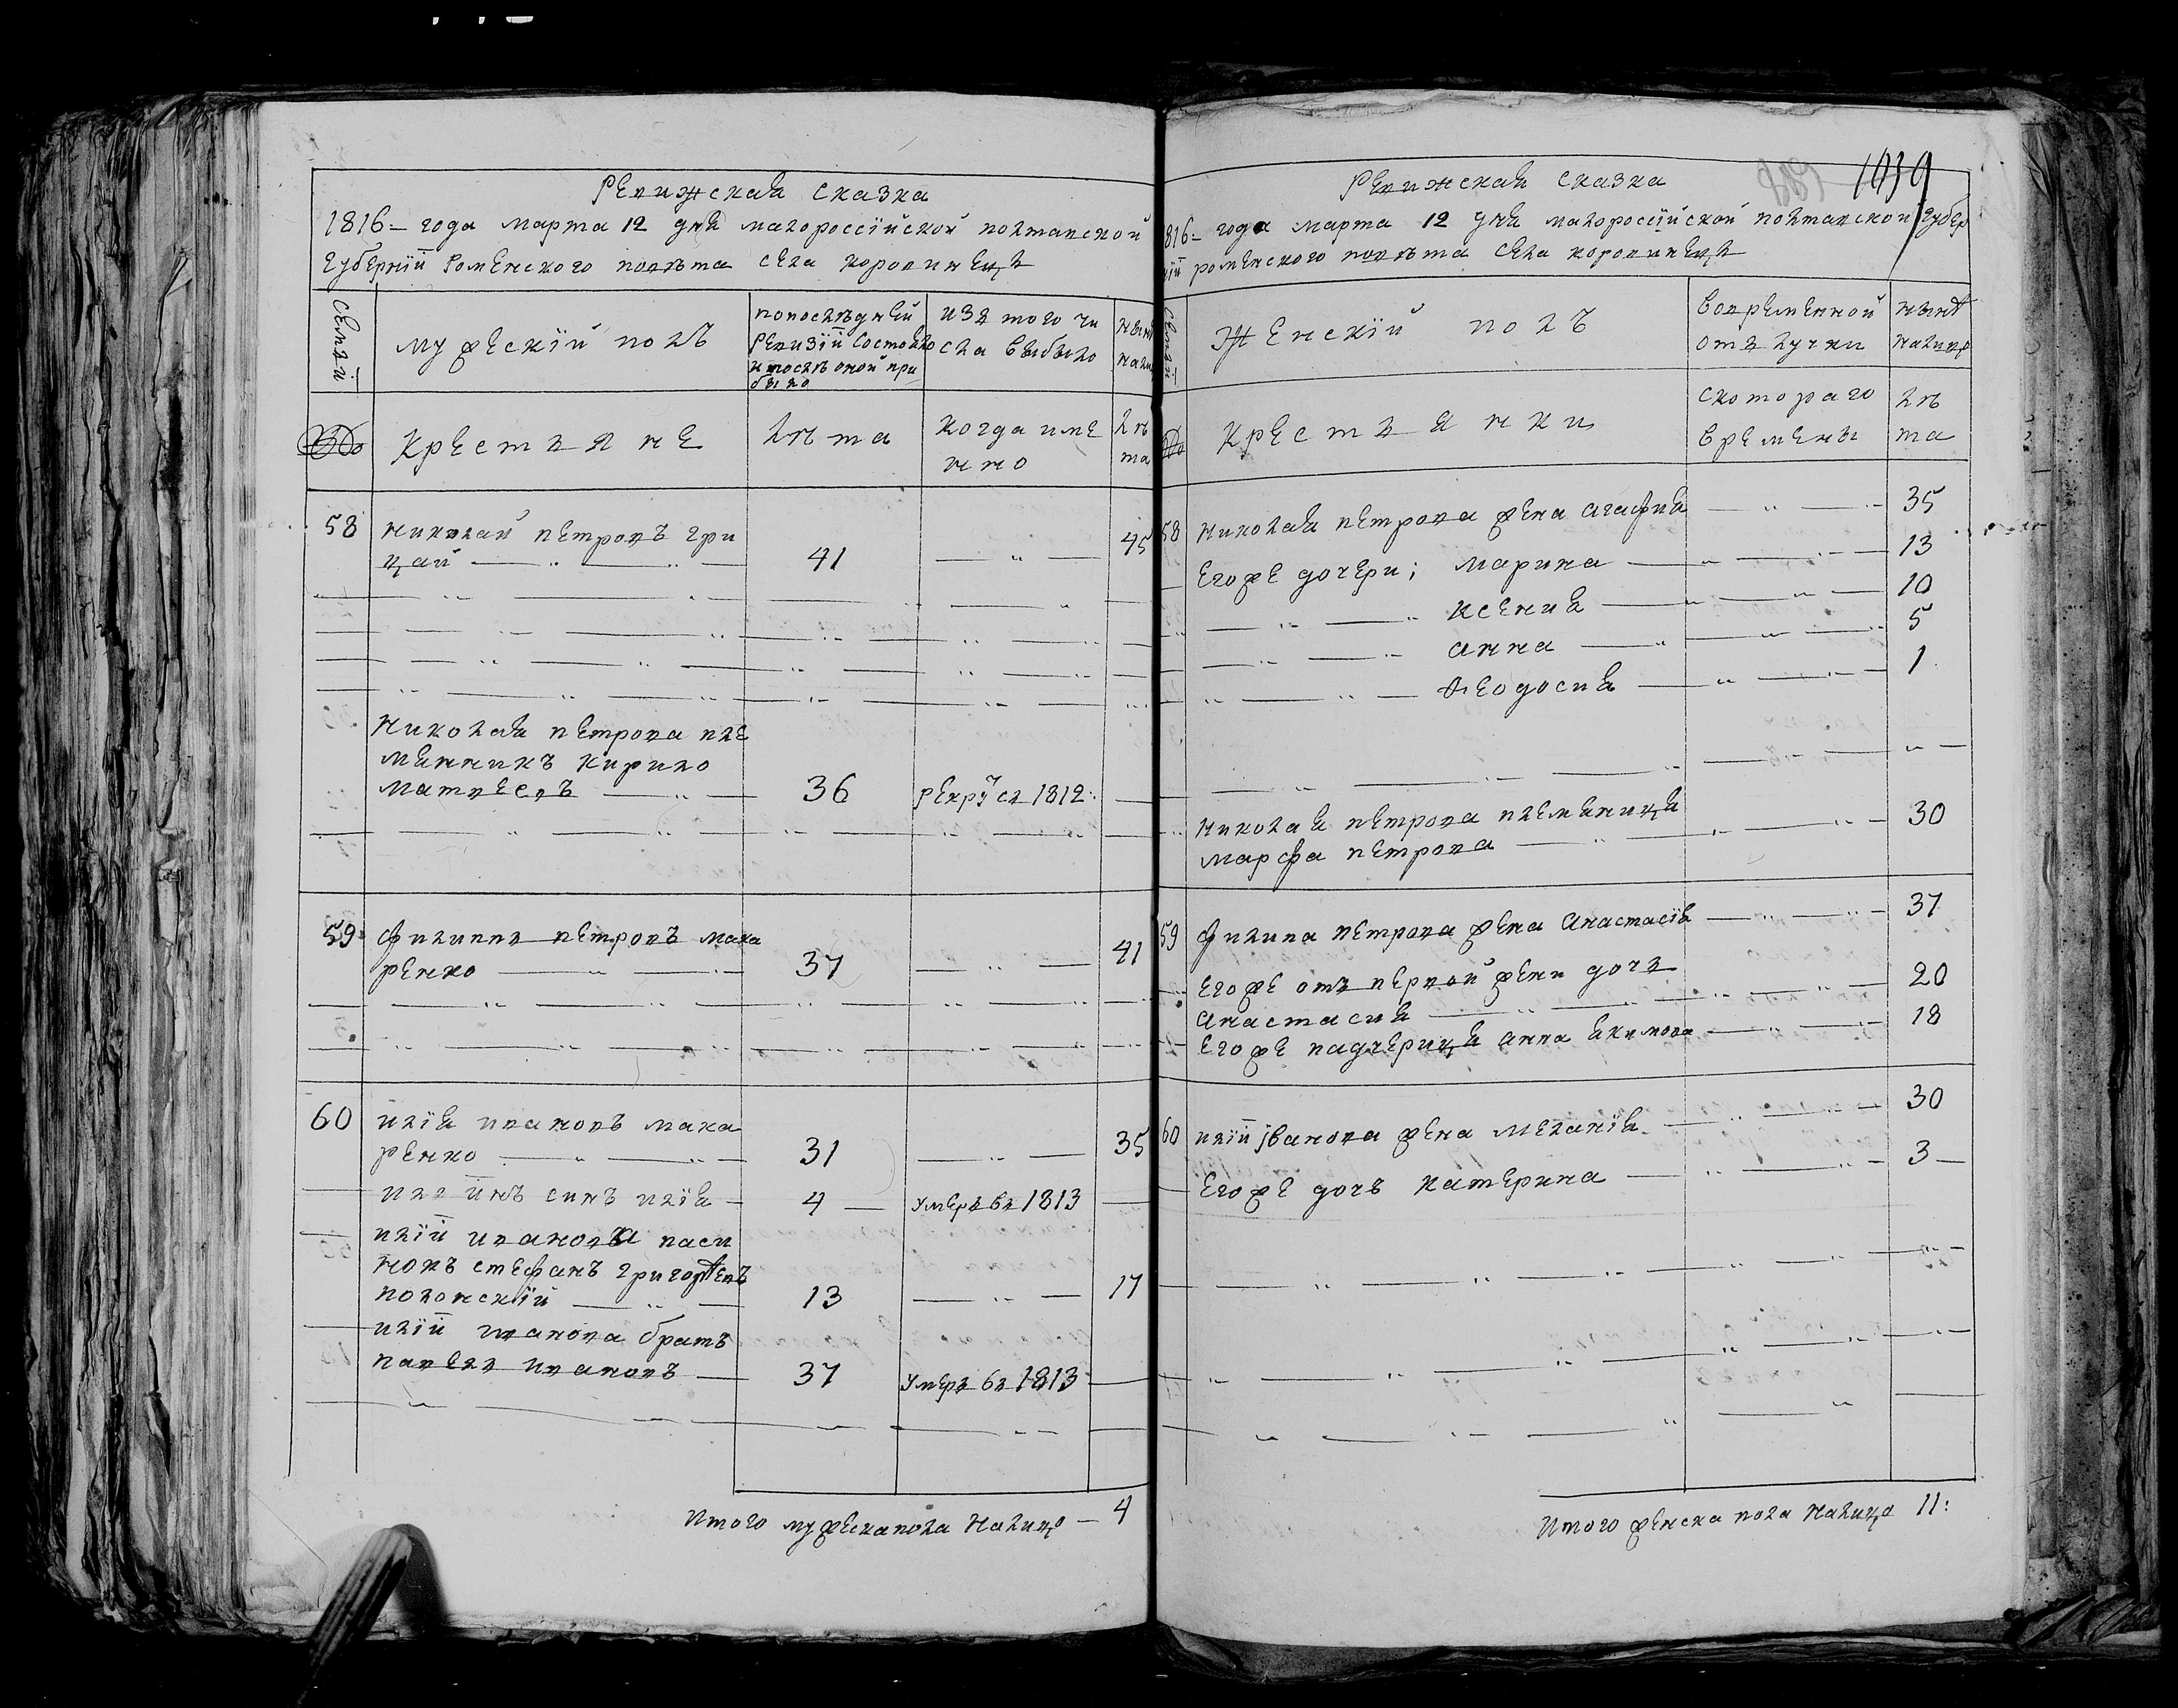 Ревижская сказка
1816 – года марта 12 дня малороссійской полтавской
губернїи роменского повѣта села коровинецъ
Семьи
мужескій полъ
попослѣдней
ревизїи состояло
и послѣ оной при
было
изъ того чи
сла выбыло
нынѣ
нали
№
Крестьяне
лѣта
когда име
нно
лѣ
та
58 николай петровъ гри
цай 41 45
Николая петрова пле
мянникъ кирило
матвеевъ 36 рекру съ 1812:
59 филиппъ петровъ мака
ренко 37 41
60 илїя ивановъ мака
ренко 31 35
илїинъ синъ илїя 4 умеръ въ 1813
илїи иванова паси
нокъ стефанъ григорїевъ
полонскїй 13 17
илїи иванова братъ
павелъ ивановъ 37 умеръ въ 1813
Итого мужеска пола Налицо – 4
1039
Ревижская сказка
816 – года марта 12 дня малороссїйской полтавской губер
нїи роменского повѣта села коровинецъ
Семьи
Женскїй полъ
вовременной
отълучки
нынѣ
налицо
№
Крестьянки
скотораго
времены
лѣ
та
58 николая петрова жена агафия 35
Егоже дочери; марина 13
ксения 10
анна 5
Ѳеодосия 1
николая петрова племяница
марфа петрова 30
59 филипа петрова жена анастасїя 37
Егоже отъ первой жени дочъ
анастасия 20
Егоже падчерица анна якимова 18
60 илїи иванова жена меланїя 30
Егоже дочъ катерина 3
Итого женска пола налицо 11: